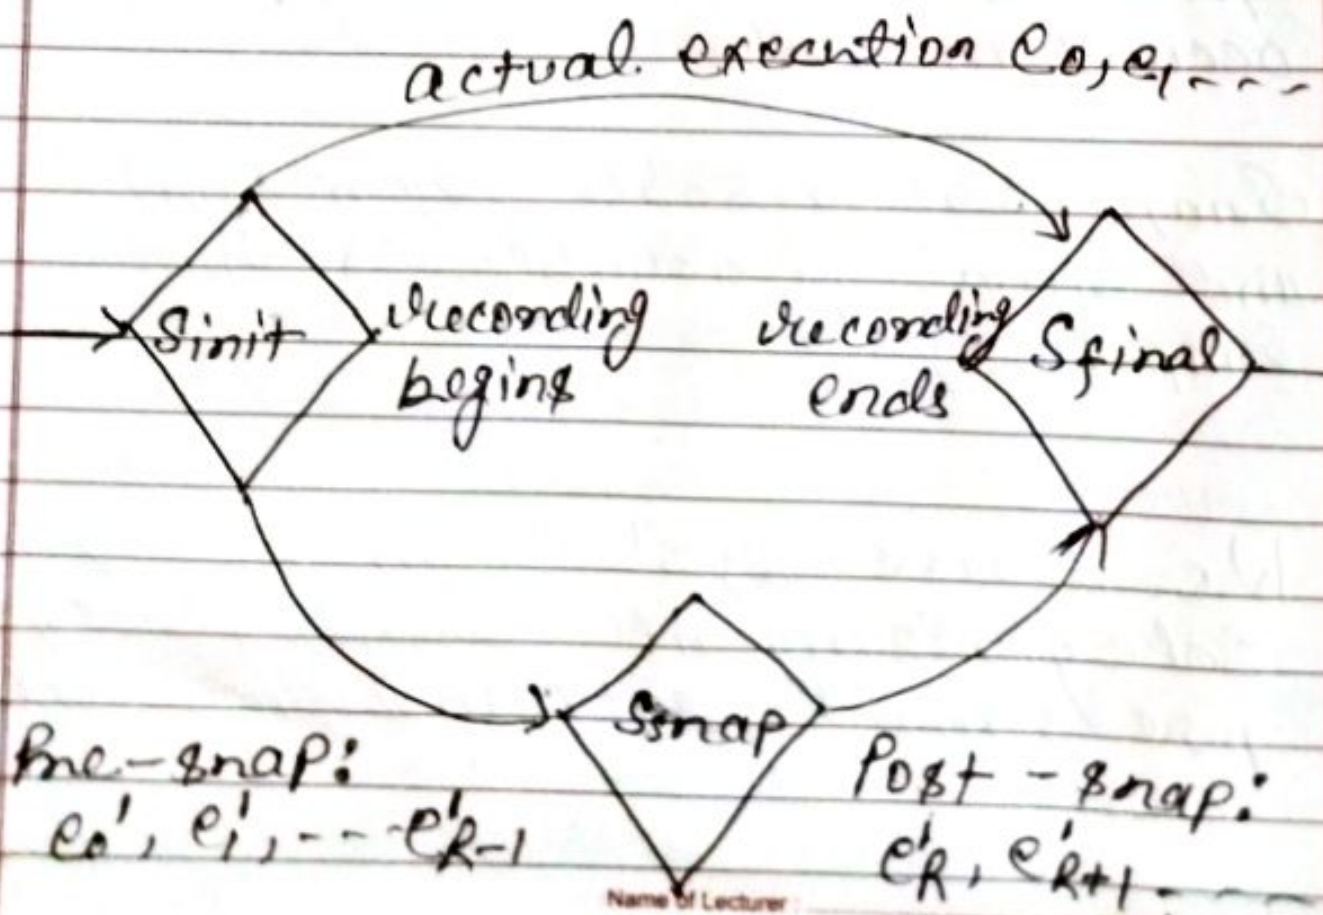 actual execution e0, e1, ---
Sinit
recording
begins
recording
ends
Sfinal
Ssnap
Pre-snap:
e0', e1', --- e'R-1
Post-snap:
e'R, e'R+1 ----
Name of Lecturer :